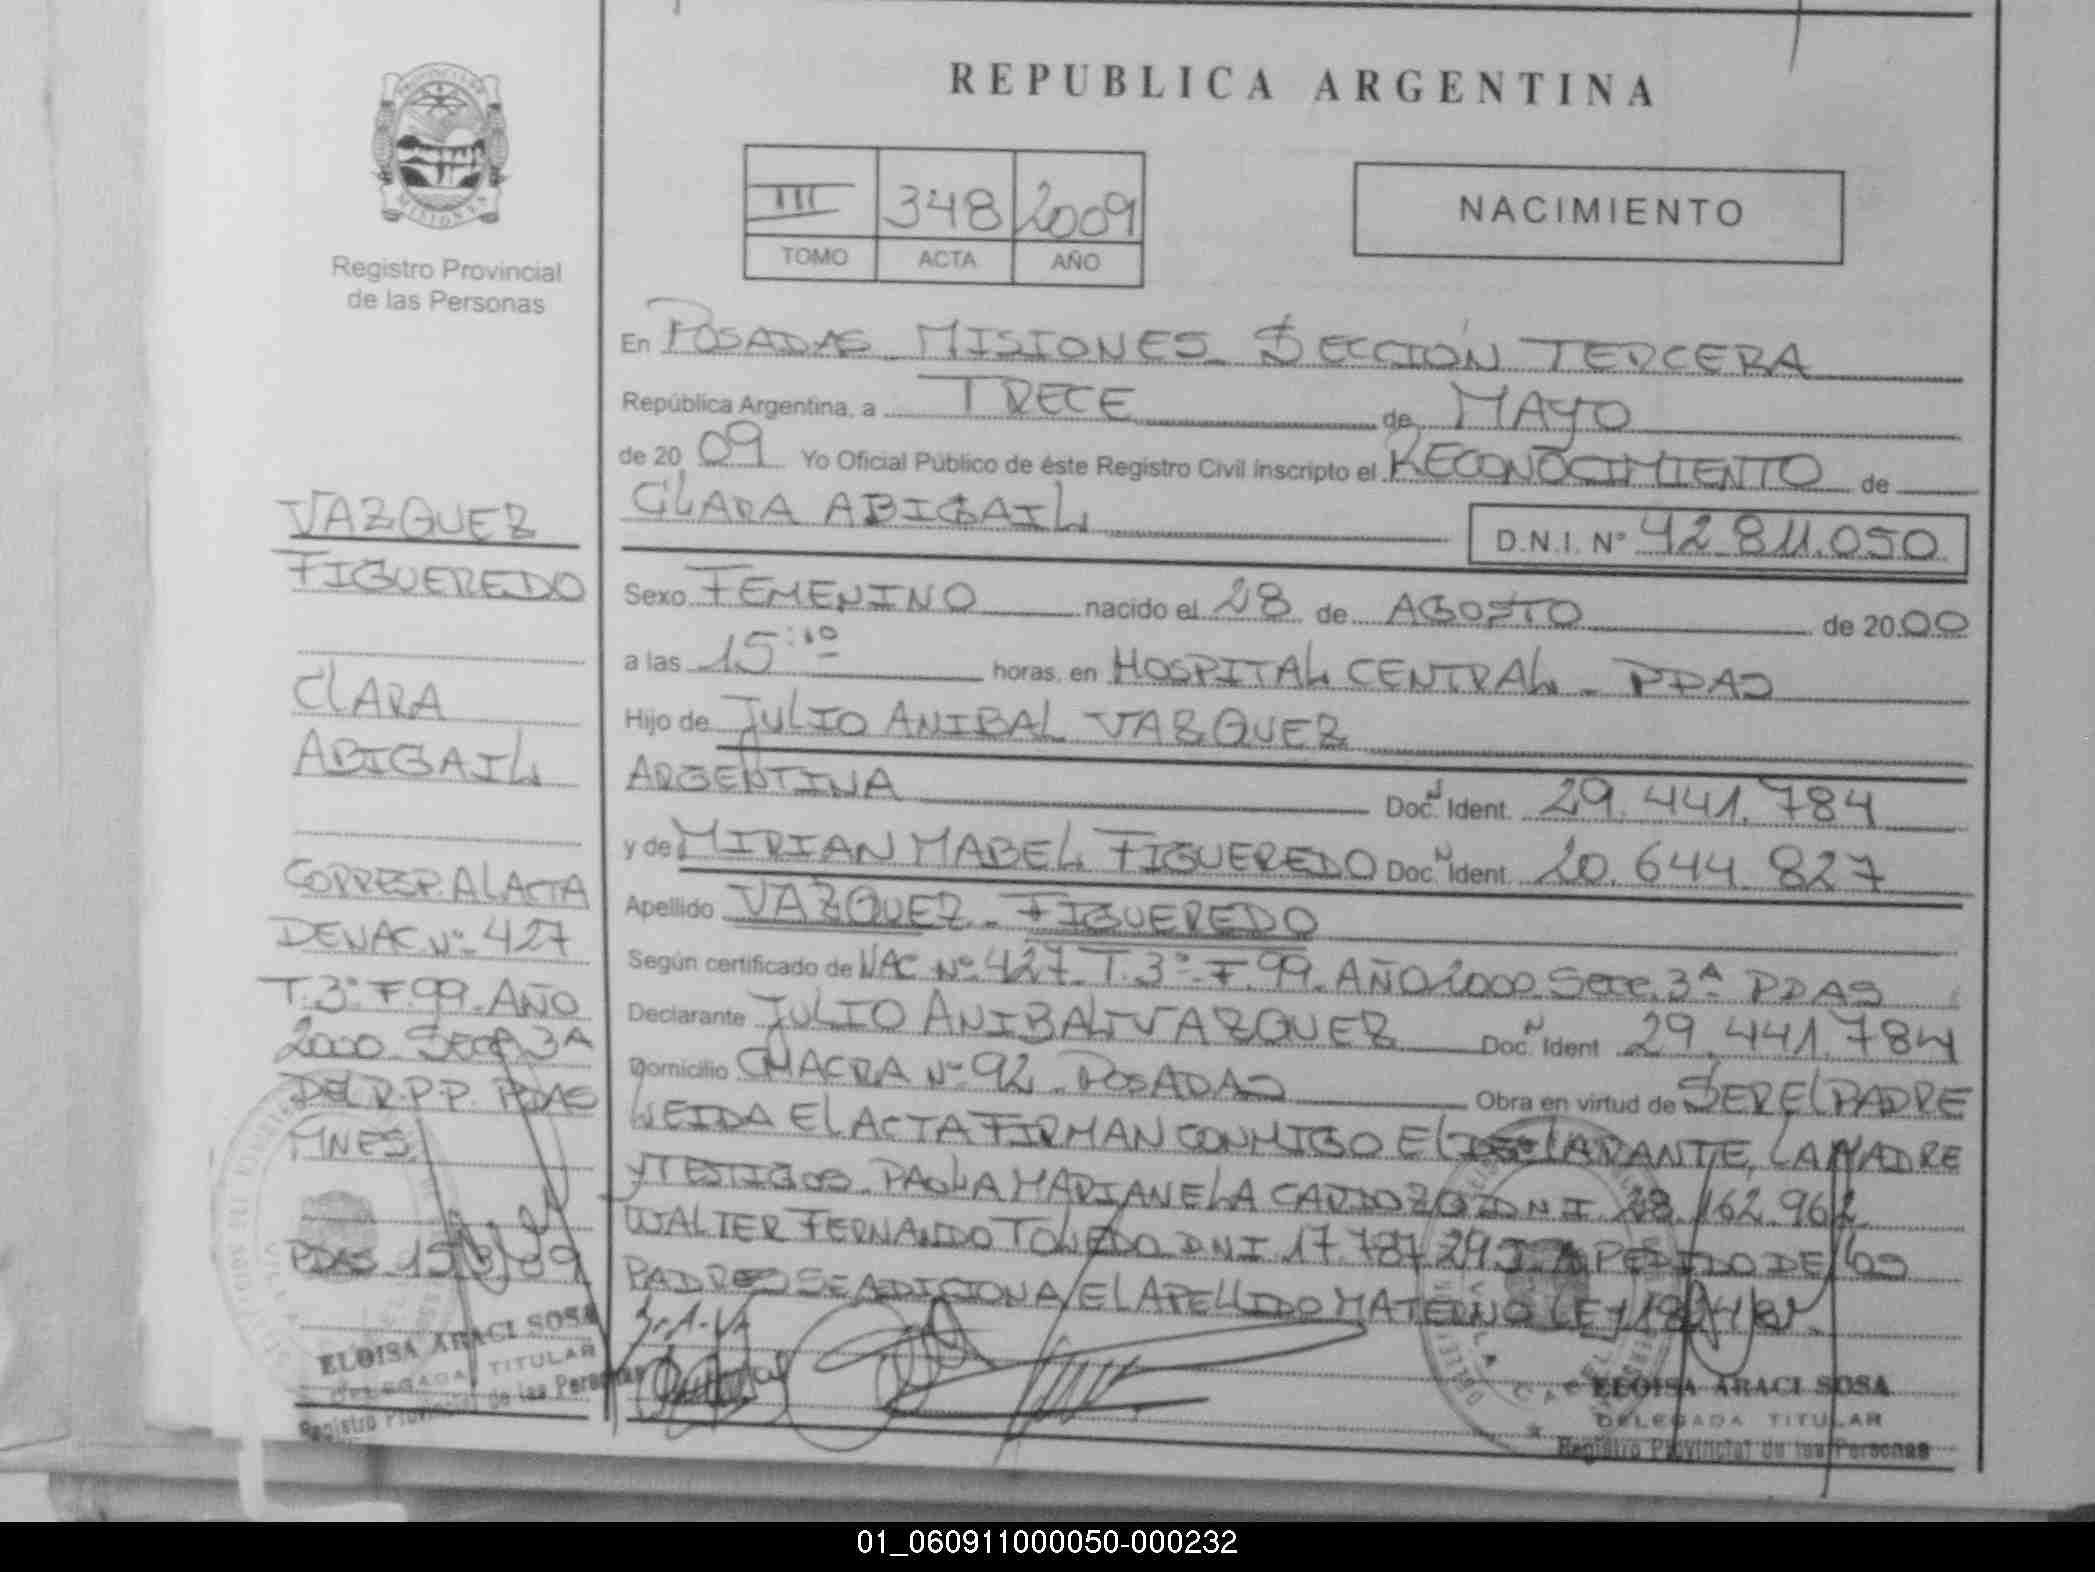 REPUBLICA ARGENTINA
PROVINCIA DE
MISIONES
Registro Provincial
de las Personas
III 348 2009
TOMO ACTA AÑO
NACIMIENTO
En POSADAS MISIONES SECCIÓN TERCERA
República Argentina, a TRECE de MAYO
de 20 09 Yo Oficial Público de éste Registro Civil inscripto el RECONOCIMIENTO de
CLARA ABIGAIL D.N.I. Nº 42.811.050
Sexo FEMENINO nacido el 28 de AGOSTO de 2000
a las 15:10 horas, en HOSPITAL CENTRAL - PDAS
Hijo de JULIO ANIBAL VAZQUEZ
ARGENTINA Doc. Ident. 29.441.784
y de MIRIAN MABEL FIGUEREDO Doc. Ident. 20.644.827
Apellido VAZQUEZ - FIGUEREDO
Según certificado de NAC Nº 427 T. 3º F. 99 AÑO 2000 Secc. 3ª PDAS
Declarante JULIO ANIBAL VAZQUEZ Doc. Ident 29.441.784
Domicilio CHACRA Nº 92 - POSADAS Obra en virtud de SER EL PADRE
LEIDA EL ACTA FIRMAN CONMIGO EL DECLARANTE, LA MADRE
Y TESTIGOS PAOLA MARIANELA CARDOZO DNI 28.162.962
WALTER FERNANDO TOLEDO DNI 17.787.29 A PEDIDO DE LOS
PADRES SE ADICIONA EL APELLIDO MATERNO LEY
J.A.V
ELOISA ARACI SOSA
DELEGADA TITULAR
Registro Provincial de las Personas
VAZQUEZ
FIGUEREDO
CLARA
ABIGAIL
CORRESP. AL ACTA
DE NAC Nº 427
T. 3º F. 99 - AÑO
2000 SECC 3A
DEL R.P.P. PDAS
MNES.
PDAS
ELOISA ARACI SOSA
DELEGADA TITULAR
Registro Provincial de las Personas
01_060911000050-000232